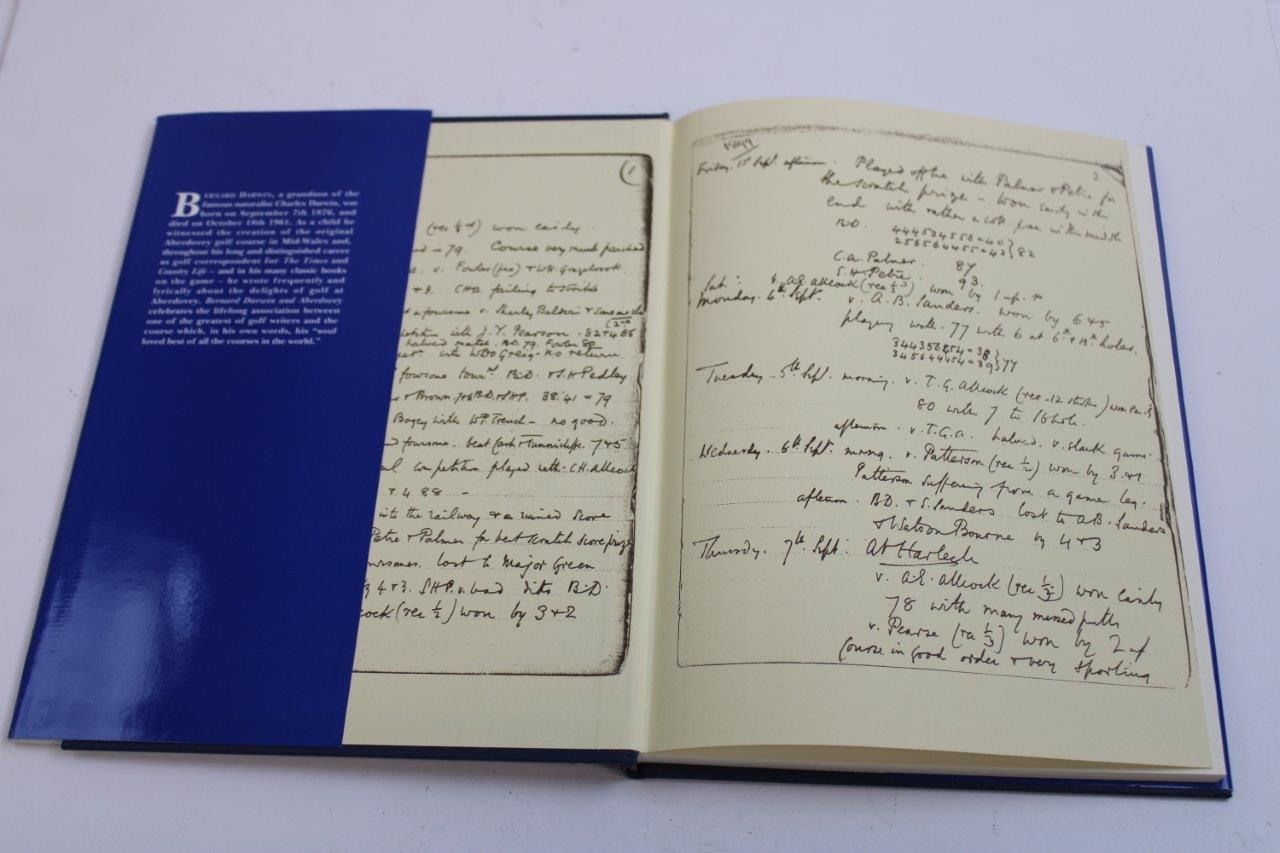 BERNARD DARWIN, a grandson of the
famous naturalist Charles Darwin, was
born on September 7th 1876, and
died on October 18th 1961. As a child he
witnessed the creation of the original
Aberdovey golf course in Mid-Wales and,
throughout his long and distinguished career
as golf correspondent for The Times and
Country Life – and in his many classic books
on the game – he wrote frequently and
lyrically about the delights of golf at
Aberdovey. Bernard Darwin and Aberdovey
celebrates the lifelong association between
one of the greatest of golf writers and the
course which, in his own words, his "soul
loved best of all the courses in the world."
(1
won easily.
= 79. Course very much parched
v. Fowler (pro) + WH.
+3. CHA failing to strike
a foursome v. Sherley, Baldwin +
with J. Y. Pearson. 82 + 4 88
halved match. B.D. 79. Fowler 80
with WDO Greig - no return
foursome tourt. B.D. + S.H Pedley
+ Brown 7+6 B.D. + SHP. 38.41 = 79
Bogey with W.P. Trench - no good.
foursome. beat Cash + Tunnicliffe. 7+5
competition played with C.H. Allcock
+ 4 88 -
into the railway + a ruined score
Petre + Palmer for best scratch score prize
foursomes. lost to Major Green
4+3. S.H.P. v. bad ditto B.D.
cock (rec ½) won by 3+2
1899
2
Friday. 1st Sept. afternoon. Played off tie with Palmer + Petre for
the scratch prize - Won easily in the
end with rather a in the midst
B.D. 444534556 = 40 } 82
256564455 = 42
C.A. Palmer. 87
S.H. Petre. 93.
Sat: v. A.E. Allcock (rec ½) won by 1 up.
Monday. 4th Sept. v. A.B. Sanders. won by 6+5
playing well. 77 with 6 at 6th + 13th holes.
344356454 = 38 } 77
345644454 = 39
Tuesday. 5th Sept. morning. v. T.G. Allcock (rec. 12 strokes) won easily
80 with 7 to 16 hole.
afternoon. v. T.G.A. halved. v. slack game.
Wednesday. 6th Sept. morng. v. Patterson (rec ½) won by 3+1
Patterson suffering from a game leg.
afternoon. B.D. + S. Sanders lost to A.B. Sanders
+ Watson Bourne by 4+3
Thursday. 7th Sept: At Harlech
v. A.E. Allcock (rec ½) won easily
78 with many missed putts
v. Pearse (rec ⅓) won by 2 up
Course in good order + very sporting